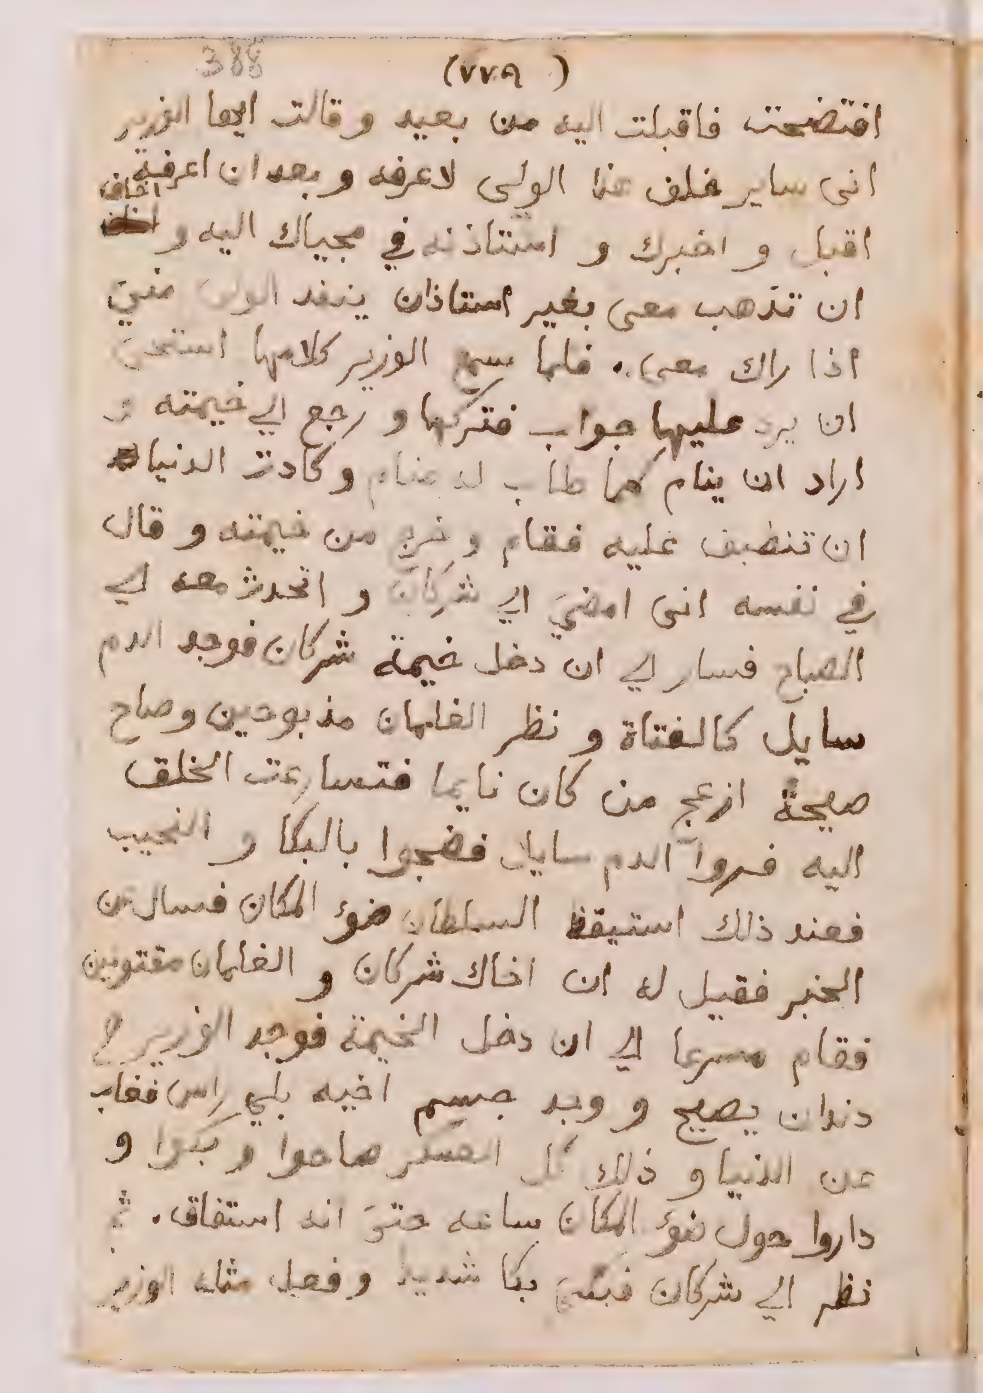 388
(٧٧٩)
افتضحت فاقبلت اليه من بعيد و قالت ايها الوزير
انى ساير خلف هذا الولى لاعرفه و بعد ان اعرفه
اقبل و اخبرك و استاذنه في مجياك اليه و اخاف
ان تذهب معى بغير استاذان ينفد الولى منى
اذا راك معى. فلما سمع الوزير كلامها استحى
ان يرد عليها جواب فتركها و رجع الي خيمته و
اراد ان ينام كما طاب له منام و كادت الدنيا
ان تنطبف عليه فقام و خرج من خيمته و قال
في نفسه انى امضي الي شركان و اتحدث معه الي
الصباح فسار الي ان دخل خيمة شركان فوجد الدم
سايل كالفتاة و نظر الغلمان مذبوحين وصاح
صيحة ازعج من كان نايما فتسارعت الخلق
اليه فروا الدم سايل فضجوا بالبكا و النحيب
فعند ذلك استيقظ السلطان ضوء المكان فسال عن
الخبر فقيل له ان اخاك شركان و الغلمان مقتولين
فقام مسرعا الي ان دخل الخيمة فوجد الوزير
دندان يصيح و وجد جسم اخيه بلي راس فغاب
عن الدنيا و ذلك كل العسكر صاحوا و بكوا و
داروا حول ضوء المكان ساعه حتى انه استفاق. ثم
نظر الي شركان فبكى بكا شديدا و فعل مثله الوزير